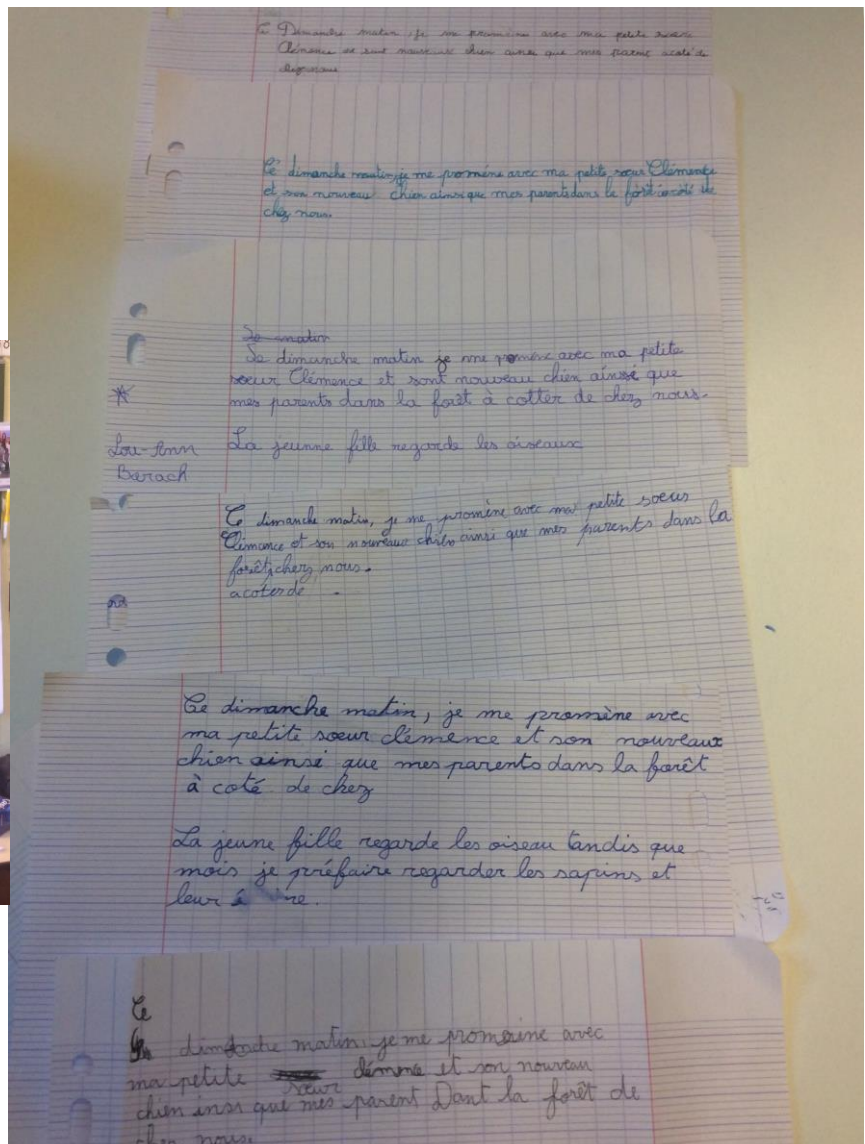 Dimanche matin, je me promène avec ma petite sœur
Clémence et sont chien ainsi que mes parent acoté de
Cé dimanche matin, je me promène avec ma petite sœur Clémence
et son nouveau chien ainsi que mes parents dans la forêt a coté de
chez nous.
Se matin
Se dimanche matin je me promène avec ma petite
sœur Clémence et sont nouveau chien ainssi que
mes parents dans la forêt à cotter de chez nous.
Lou-Ann
Barach
La jeunne fille regarde les oiseaux
Ce dimanche matin, je me promène avec ma petite soeurs
Clémence et son nouveaux chien ainsi que mes parents dans la
forêt, chez nous.
a coter de
Ce dimanche matin, je me promène avec
ma petite sœur clémence et son nouveaux
chien ainsi que mes parents dans la forêt
à coté de chez
La jeune fille regarde les oiseau tandis que
mois je préfaire regarder les sapins et
leur
Ce
matin, je me promaine avec
ma petite sœur clémence et son nouveau
chien insi que mes parent Dant la forêt de
chez nous.